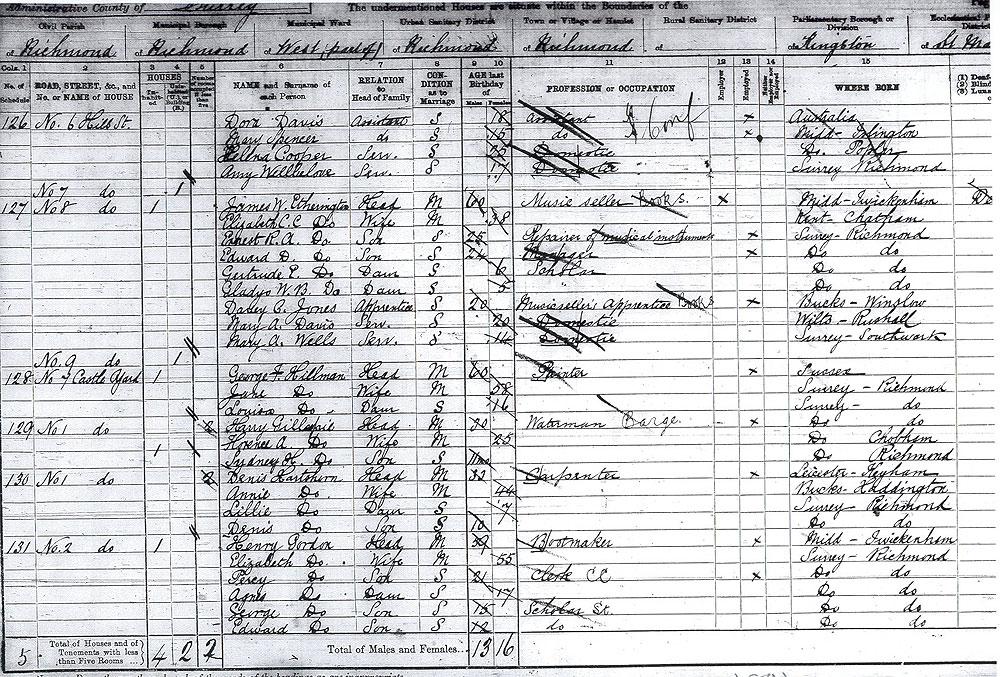 Administrative County of Surrey The undermentioned Houses are situate within the Boundaries of the
Civil Parish Municipal Borough Municipal Ward Urban Sanitary District Town or Village or Hamlet Rural Sanitary District Parliamentary Borough or Division Ecclesiastical P
of Richmond of Richmond of West (part of) of Richmond of Richmond of of Kingston of St
Cols. 1 2 3 4 5 6 7 8 9 10 11 12 13 14 15
No. of Schedule ROAD, STREET, &c., and No. or NAME of HOUSE HOUSES NAME and Surname of each Person RELATION to Head of Family CONDITION as to Marriage AGE last Birthday of Males Females PROFESSION or OCCUPATION Employer Employed WHERE BORN (1) Deaf- (2) Blind (3) Luna
126 No. 6 Hill St. Dora Davis Assistant S 18 Assistant Conf x Australia
Mary Spencer do S 15 do x Midd - Islington
Helena Cooper Serv. S 25 Domestic Do. Poplar
Amy Serv. S 17 Domestic Surrey Richmond
No 7 do 1
127 No 8 do 1 James W. Etherington Head M 60 Music seller Books x Midd - Twickenham
Elizabeth C. C. Do Wife M 38 Kent - Chatham
Ernest R. A. Do Son S 25 Repairer of musical instruments x Surrey - Richmond
Edward D. Do Son S 24 Manager x Do do
Gertrude E. Do Daur S 6 Scholar Do do
Gladys W. B. Do Daur S 5 Do do
C. Jones Apprentice S 20 Musicseller's Apprentice Books x Bucks - Winslow
Mary A. Davis Serv. S 20 Domestic Wilts - Rushall
Mary A. Wells Serv. S 14 Domestic Surrey - Southwark
No. 9 do 1
128 No 7 Castle Yard 1 George F. Hillman Head M 60 Painter x Sussex
Jane Do Wife M 58 Surrey - Richmond
Louisa Do - Daur S 16 Surrey - do
129 No 1 do 2 Harry Gillespie Head M 30 Waterman Barge x Do do
Florence A. Do Wife M 25 Do Chobham
1 1 Sydney H. Do Son S 11mo Do Richmond
130 No 1 do 2 Denis Hartshorn Head M 33 Carpenter x Leicester - Keyham
Annie Do. Wife M 44 Bucks - Haddington
Lillie Do Daur S 7 Surrey - Richmond
Denis Do Son S 10 Do do
131 No. 2 do 1 Henry Gordon Head M 39 Bootmaker x Midd - Twickenham
Elizabeth Do. Wife M 55 Surrey - Richmond
Percy Do Son S 21 Clerk CC x Do do
Agnes Do Daur S 17 Do do
George Do Son S 15 Scholar St. Do do
Edward Do Son S 12 do Do do
5 Total of Houses and of Tenements with less than Five Rooms 4 2 2 Total of Males and Females 13 16